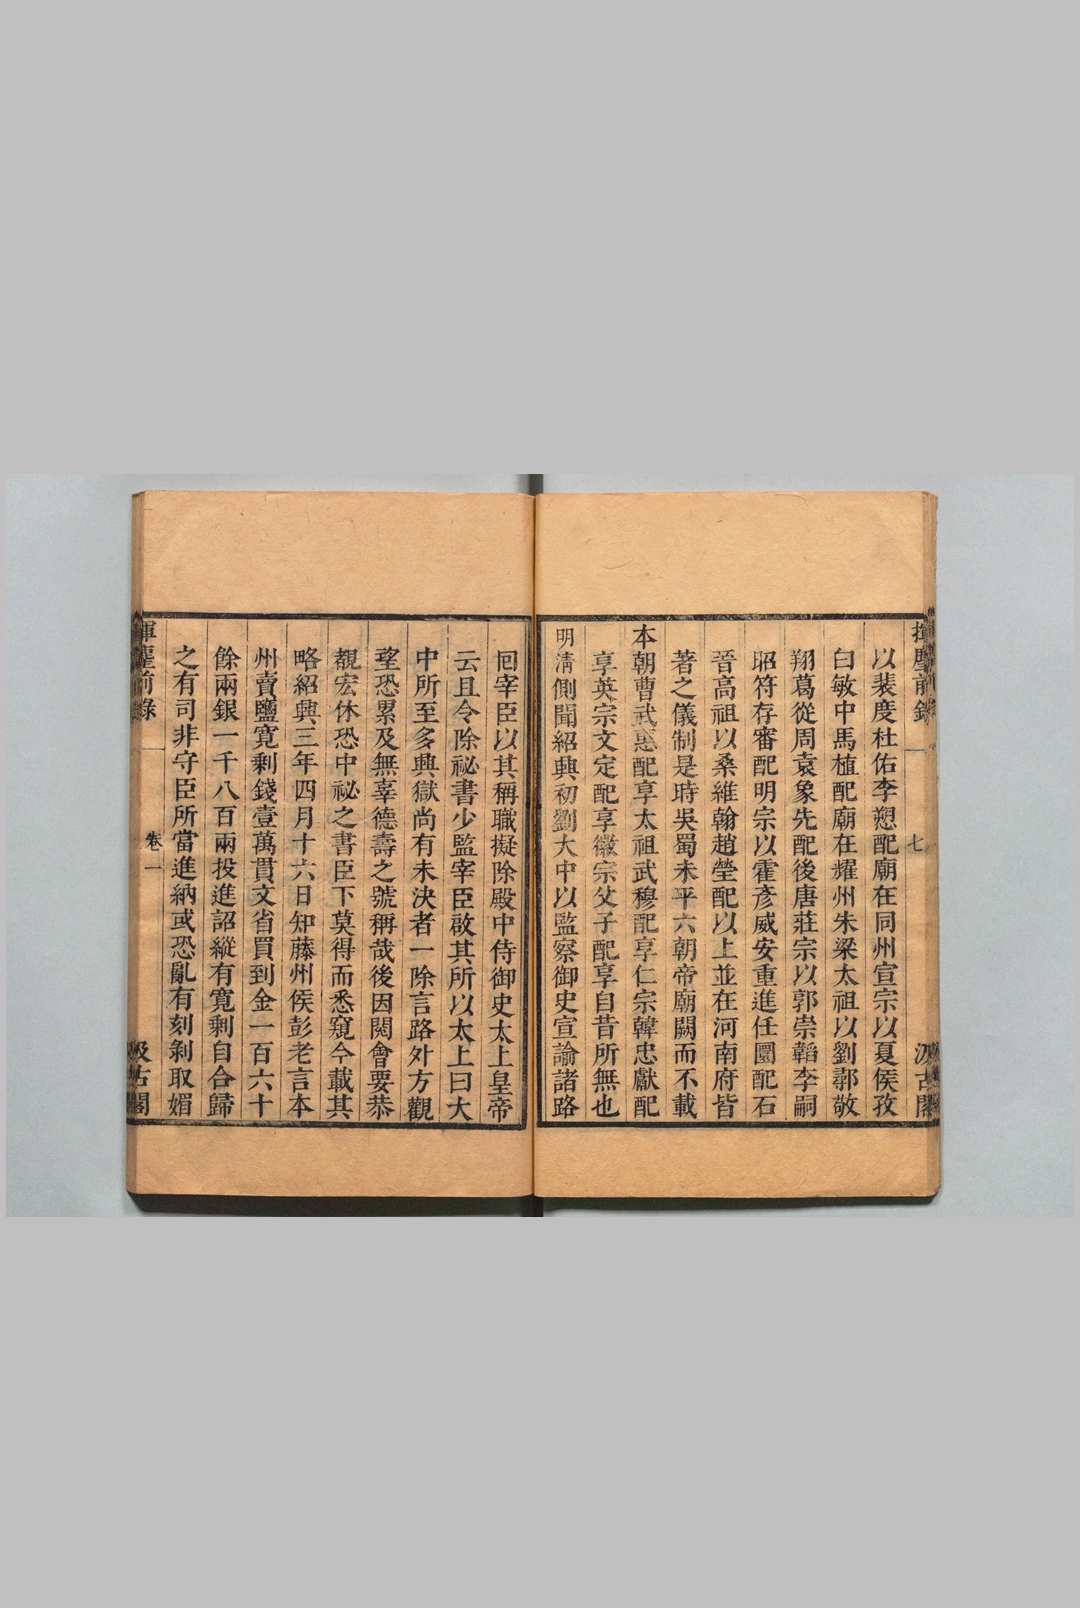 揮麈前錄
七
汲古閣
以裴度杜佑李愬配廟在同州宣宗以夏侯孜
白敏中馬植配廟在耀州朱梁太祖以劉鄩敬
翔葛從周袁象先配後唐莊宗以郭崇韜李嗣
昭符存審配明宗以霍彥威安重進任圜配石
晉高祖以桑維翰趙瑩配以上並在河南府皆
著之儀制是時吳蜀未平六朝帝廟闕而不載
本朝曹武惠配享太祖武穆配享仁宗韓忠獻配
享英宗文定配享徽宗父子配享自昔所無也
明淸側聞紹興初劉大中以監察御史宣諭諸路
囘宰臣以其稱職擬除殿中侍御史太上皇帝
云且令除祕書少監宰臣啟其所以太上曰大
中所至多興獄尚有未決者一除言路外方觀
望恐累及無辜德壽之號稱哉後因閱會要恭
覩宏休恐中祕之書臣下莫得而悉窺今載其
略紹興三年四月十六日知藤州侯彭老言本
州賣鹽寬剩錢壹萬貫文省買到金一百六十
餘兩銀一千八百兩投進詔縱有寬剩自合歸
之有司非守臣所當進納或恐亂有刻剝取媚
揮麈前錄
卷一
汲古閣